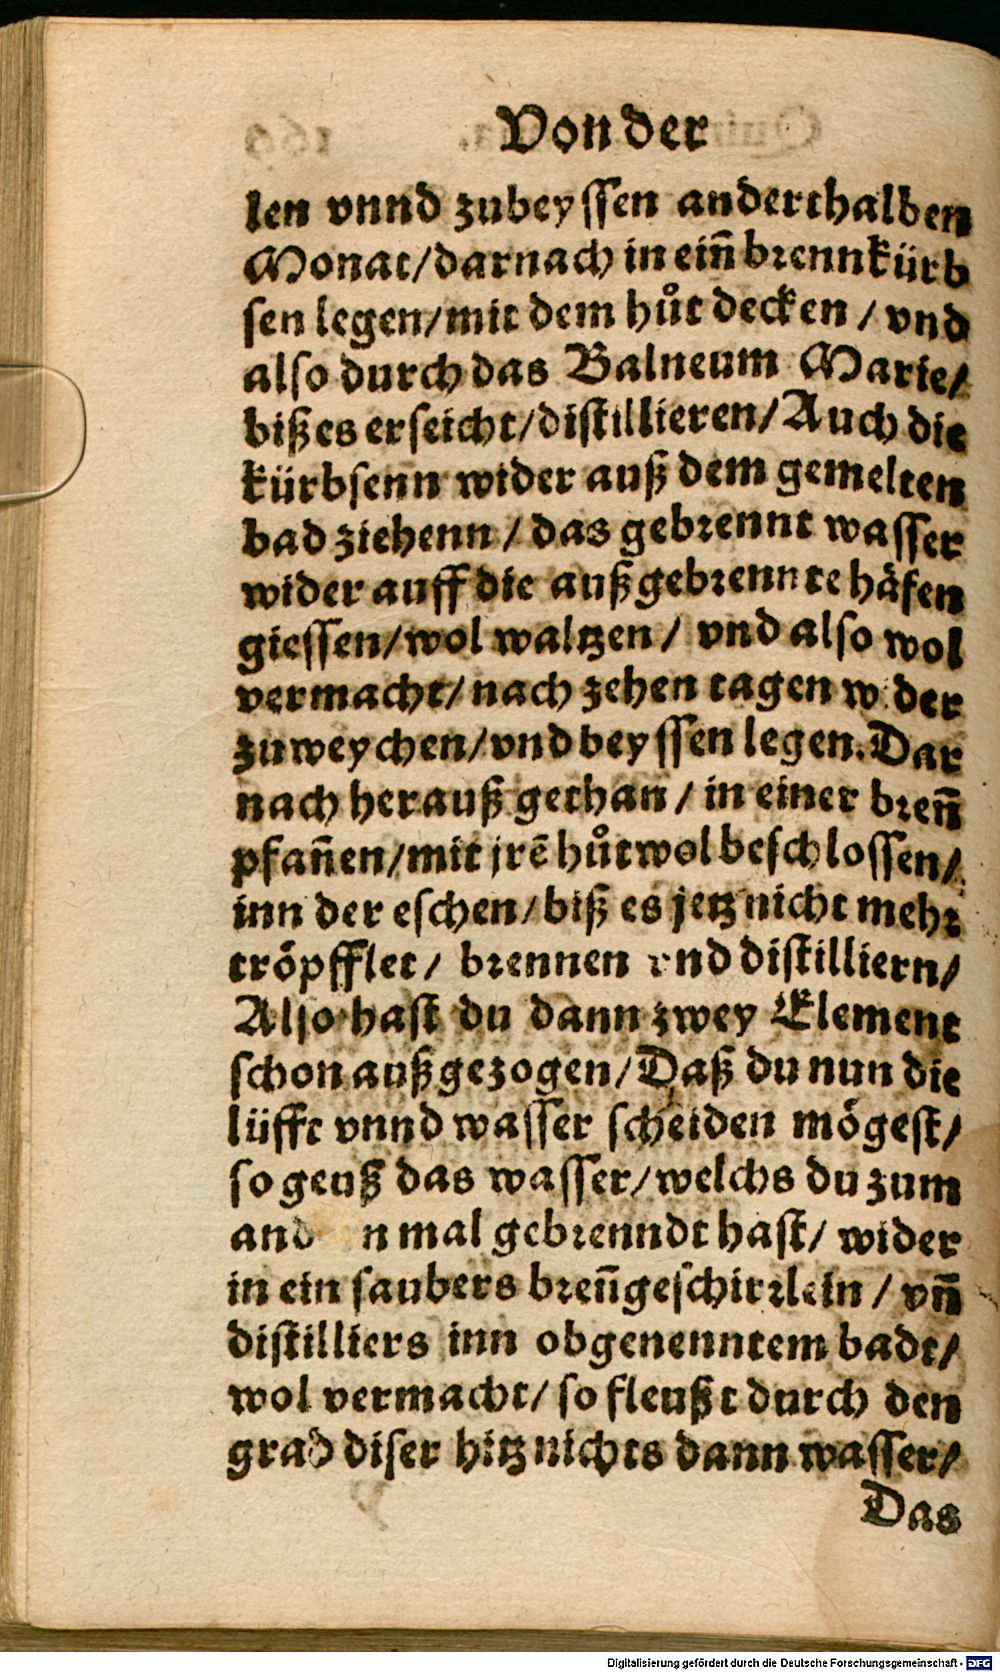 Von der
len vnnd zubeyssen anderthalben
Monat/darnach in ein̄ brennkürb
sen legen/mit dem hůt decken / vnd
also durch das Balneum Marie/
biß es erseicht/distillieren/Auch die
kürbsenn wider auß dem gemelten
bad ziehenn / das gebrennt wasser
wider auff die außgebrennte häfen
giessen/wol waltzen / vnd also wol
vermacht/nach zehen tagen wider
zu weychen/vnd beyssen legen. Dar
nach herauß gethan / in einer breñ
pfañen/mit jrē hůt wol beschlossen/
inn der eschen/biß es jetz nicht mehr
tröpfflet / brennen vnd distilliern/
Also hast du dann zwey Element
schon außgezogen/Daß du nun die
lüfft vnnd wasser scheiden mögest/
so geuß das wasser/welchs du zum
and n mal gebrenndt hast/ wider
in ein saubers breñgeschirrlein / vñ
distilliers inn obgenenntem badt/
wol vermacht/ so fleußt durch den
grad diser hitz nichts dann wasser/
Das
Digitalisierung gefördert durch die Deutsche Forschungsgemeinschaft - DFG